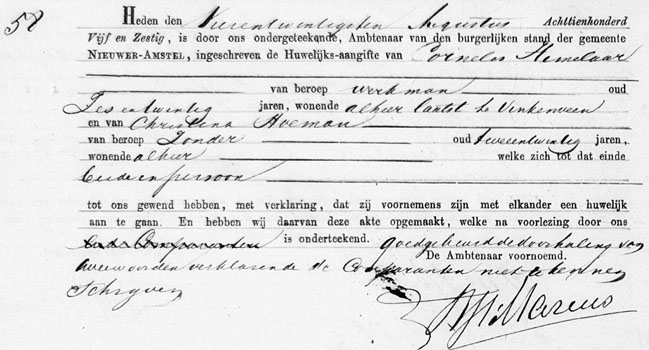 58
Heden den Vierentwintigsten Augustus Achttienhonderd
Vijf en Zestig, is door ons ondergeteekende, Ambtenaar van den burgerlijken stand der gemeente
Nieuwer-Amstel, ingeschreven de Huwelijks-aangifte van Cornelis Hemelaar
van beroep werkman oud
Zesentwintig jaren, wonende alhier laatst te Vinkeveen
en van Christina Hoeman
van beroep Zonder oud tweeentwintig jaren,
wonende alhier welke zich tot dat einde
beide in persoon
tot ons gewend hebben, met verklaring, dat zij voornemens zijn met elkander een huwelijk
aan te gaan. En hebben wij daarvan deze akte opgemaakt, welke na voorlezing door ons
en de Comparanten is onderteekend. goedgekeurd de doorhaling van
De Ambtenaar voornoemd.
twee woorden verklarende de Comparanten niet te kennen
Schryven